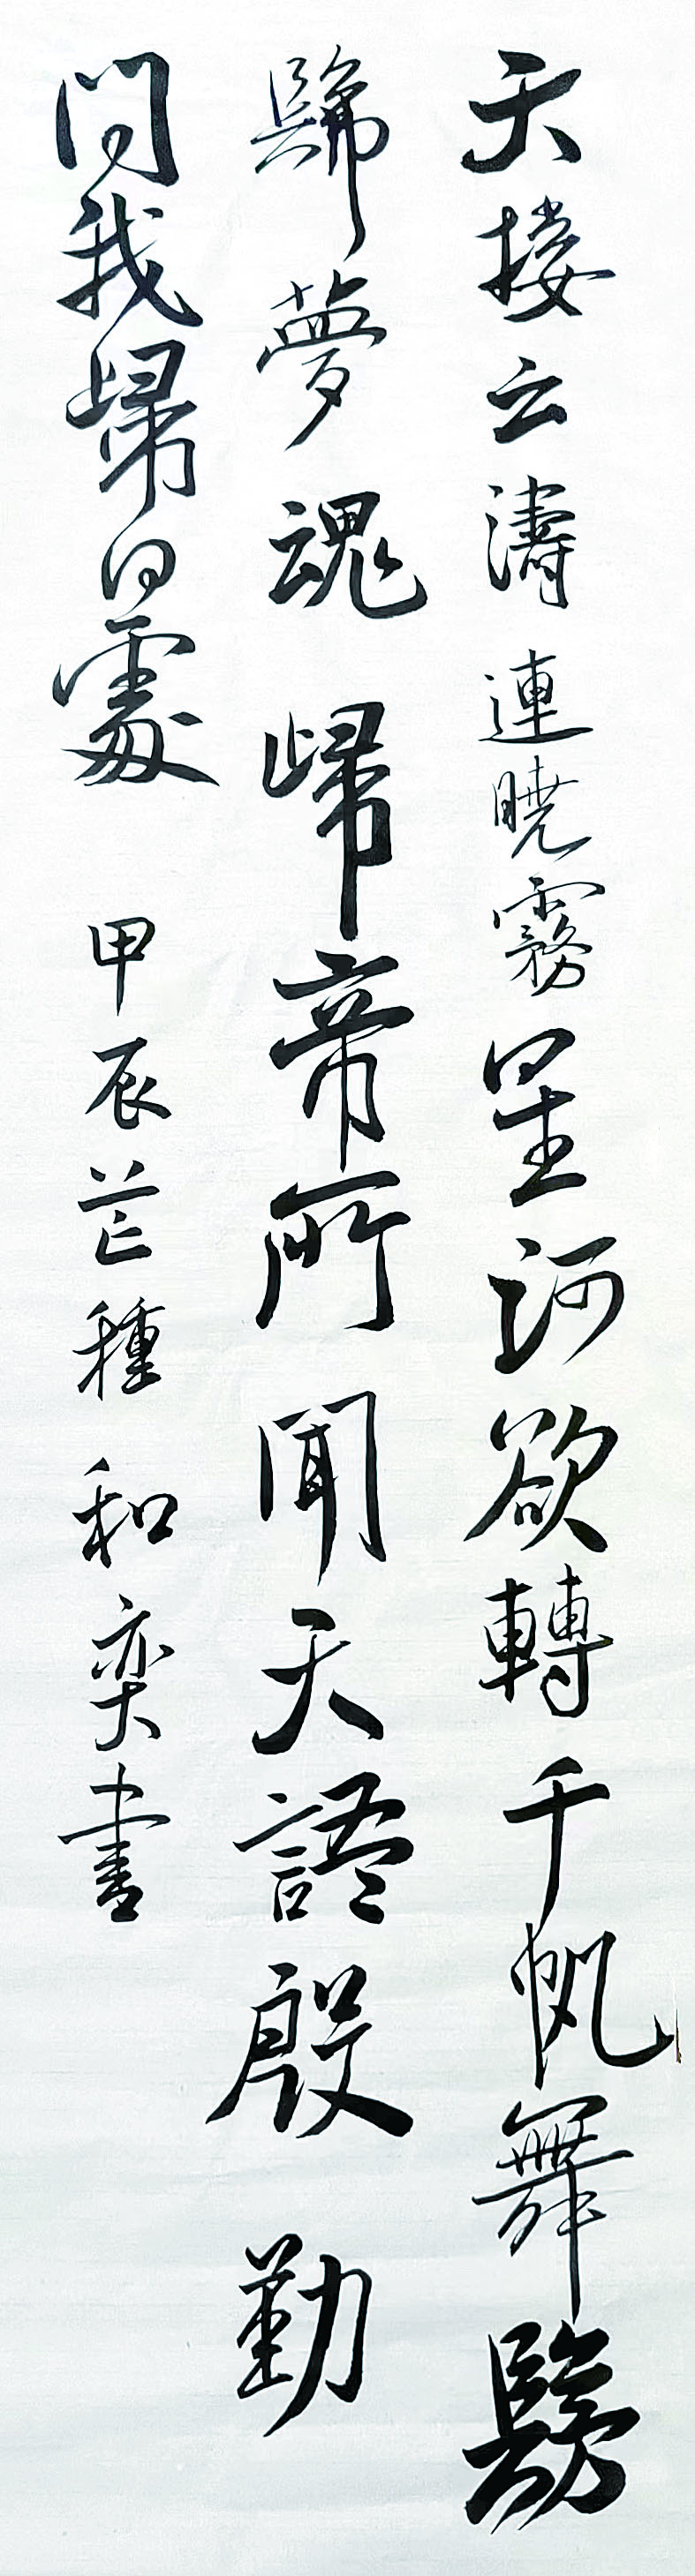 天接云濤連曉霧星河欲轉千帆舞髣
髴夢魂歸帝所聞天語殷勤
問我歸何處 甲辰芒種 和奕書